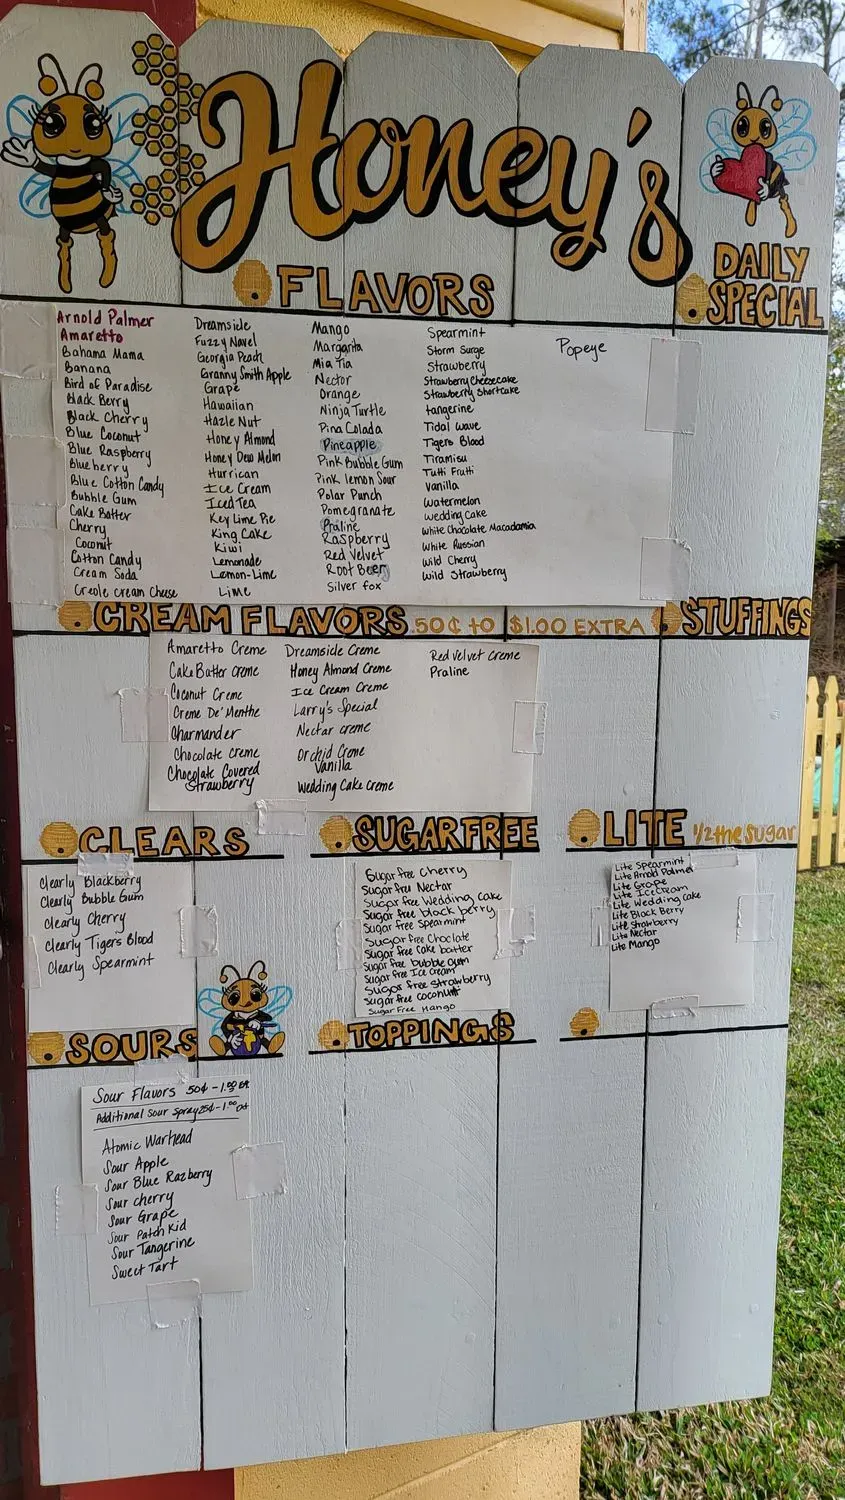 Honey's
DAILY
SPECIAL
FLAVORS
Arnold Palmer
Amaretto
Bahama Mama
Banana
Bird of Paradise
Black Berry
Black Cherry
Blue Coconut
Blue Raspberry
Blueberry
Blue Cotton Candy
Bubble Gum
Cake Batter
Cherry
Coconut
Cotton Candy
Cream Soda
Creole cream cheese
Dreamsicle
Fuzzy Navel
Georgia Peach
Granny Smith Apple
Grape
Hawaiian
Hazle Nut
Honey Almond
Honey Dew Melon
Hurrican
Ice Cream
Iced Tea
Key Lime Pie
King Cake
Kiwi
Lemonade
Lemon-Lime
Lime
Mango
Margarita
Mia Tia
Nector
Orange
Ninja Turtle
Pina Colada
Pineapple
Pink Bubble Gum
Pink lemon Sour
Polar Punch
Pomegranate
Praline
Raspberry
Red Velvet
Root Beer
Silver fox
Spearmint
Storm Surge
Strawberry
Strawberry Cheesecake
Strawberry Shortcake
tangerine
Tidal wave
Tigers Blood
Tiramisu
Tutti Frutti
Vanilla
Watermelon
Wedding Cake
White Chocolate Macadamia
White Russian
Wild Cherry
Wild Strawberry
Popeye
CREAM FLAVORS .50¢ to $1.00 EXTRA
STUFFINGS
Amaretto Creme
Cake Batter creme
Coconut Creme
Creme De'Menthe
Charmander
Chocolate creme
Chocolate Covered
Strawberry
Dreamsicle Creme
Honey Almond Creme
Ice Cream Creme
Larry's Special
Nectar creme
Orchid Creme
Vanilla
Wedding Cake Creme
Red Velvet Creme
Praline
CLEARS
Clearly Blackberry
Clearly Bubble Gum
Clearly Cherry
Clearly Tigers Blood
Clearly Spearmint
SUGARFREE
Sugar free Cherry
Sugar free Nectar
Sugar free Wedding Cake
Sugar free black berry
Sugar free Spearmint
Sugar free Choclate
Sugar free Cake batter
Sugar free bubble gum
Sugar free Ice Cream
Sugar free strawberry
Sugar free coconut
Sugar Free Mango
LITE 1/2 the sugar
Lite Spearmint
Lite Arnold Palmer
Lite Grape
Lite Ice Cream
Lite Wedding Cake
Lite Black Berry
Lite Strawberry
Lite Nectar
Lite Mango
SOURS
Sour Flavors 50¢ - 1.00 ea
Additional Sour Spray 25¢ - 1.00
Atomic Warhead
Sour Apple
Sour Blue Razberry
Sour cherry
Sour Grape
Sour Patch Kid
Sour Tangerine
Sweet Tart
TOPPINGS